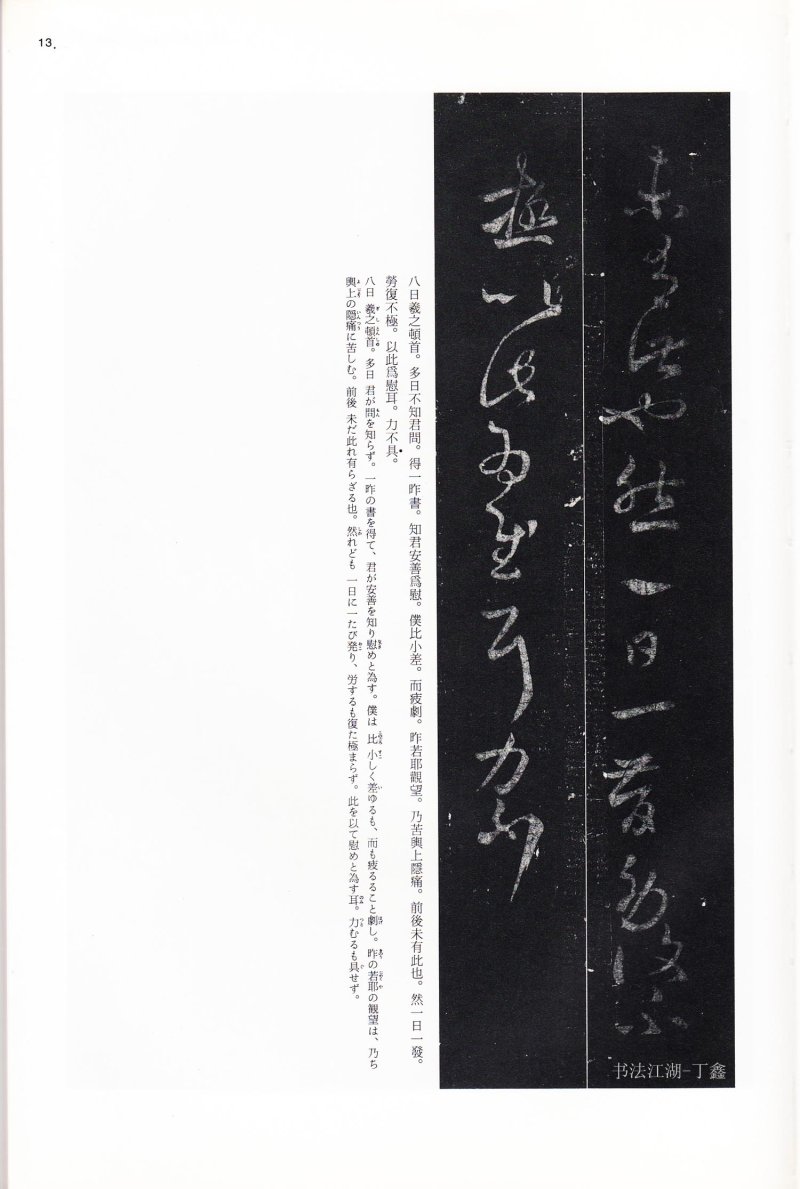 13.
未有此也然一日一發勞復不
極以此為慰耳力不
八日羲之頓首。多日不知君問。得一昨書。知君安善爲慰。僕比小差。而疲劇。昨若耶觀望。乃苦輿上隱痛。前後未有此也。然一日一發。
勞復不極。以此爲慰耳。力不具。
八日 羲之頓首。多日 君が問を知らず。一昨の書を得て、君が安善を知り慰めと為す。僕は 比 小しく差ゆるも、而も疲るること劇し。昨の若耶の観望は、乃ち
輿上の隠痛に苦しむ。前後 未だ此れ有らざる也。然れども 一日に一たび発り、労するも復た極まらず。此を以て慰めと為す耳。力むるも具せず。
书法江湖-丁鑫